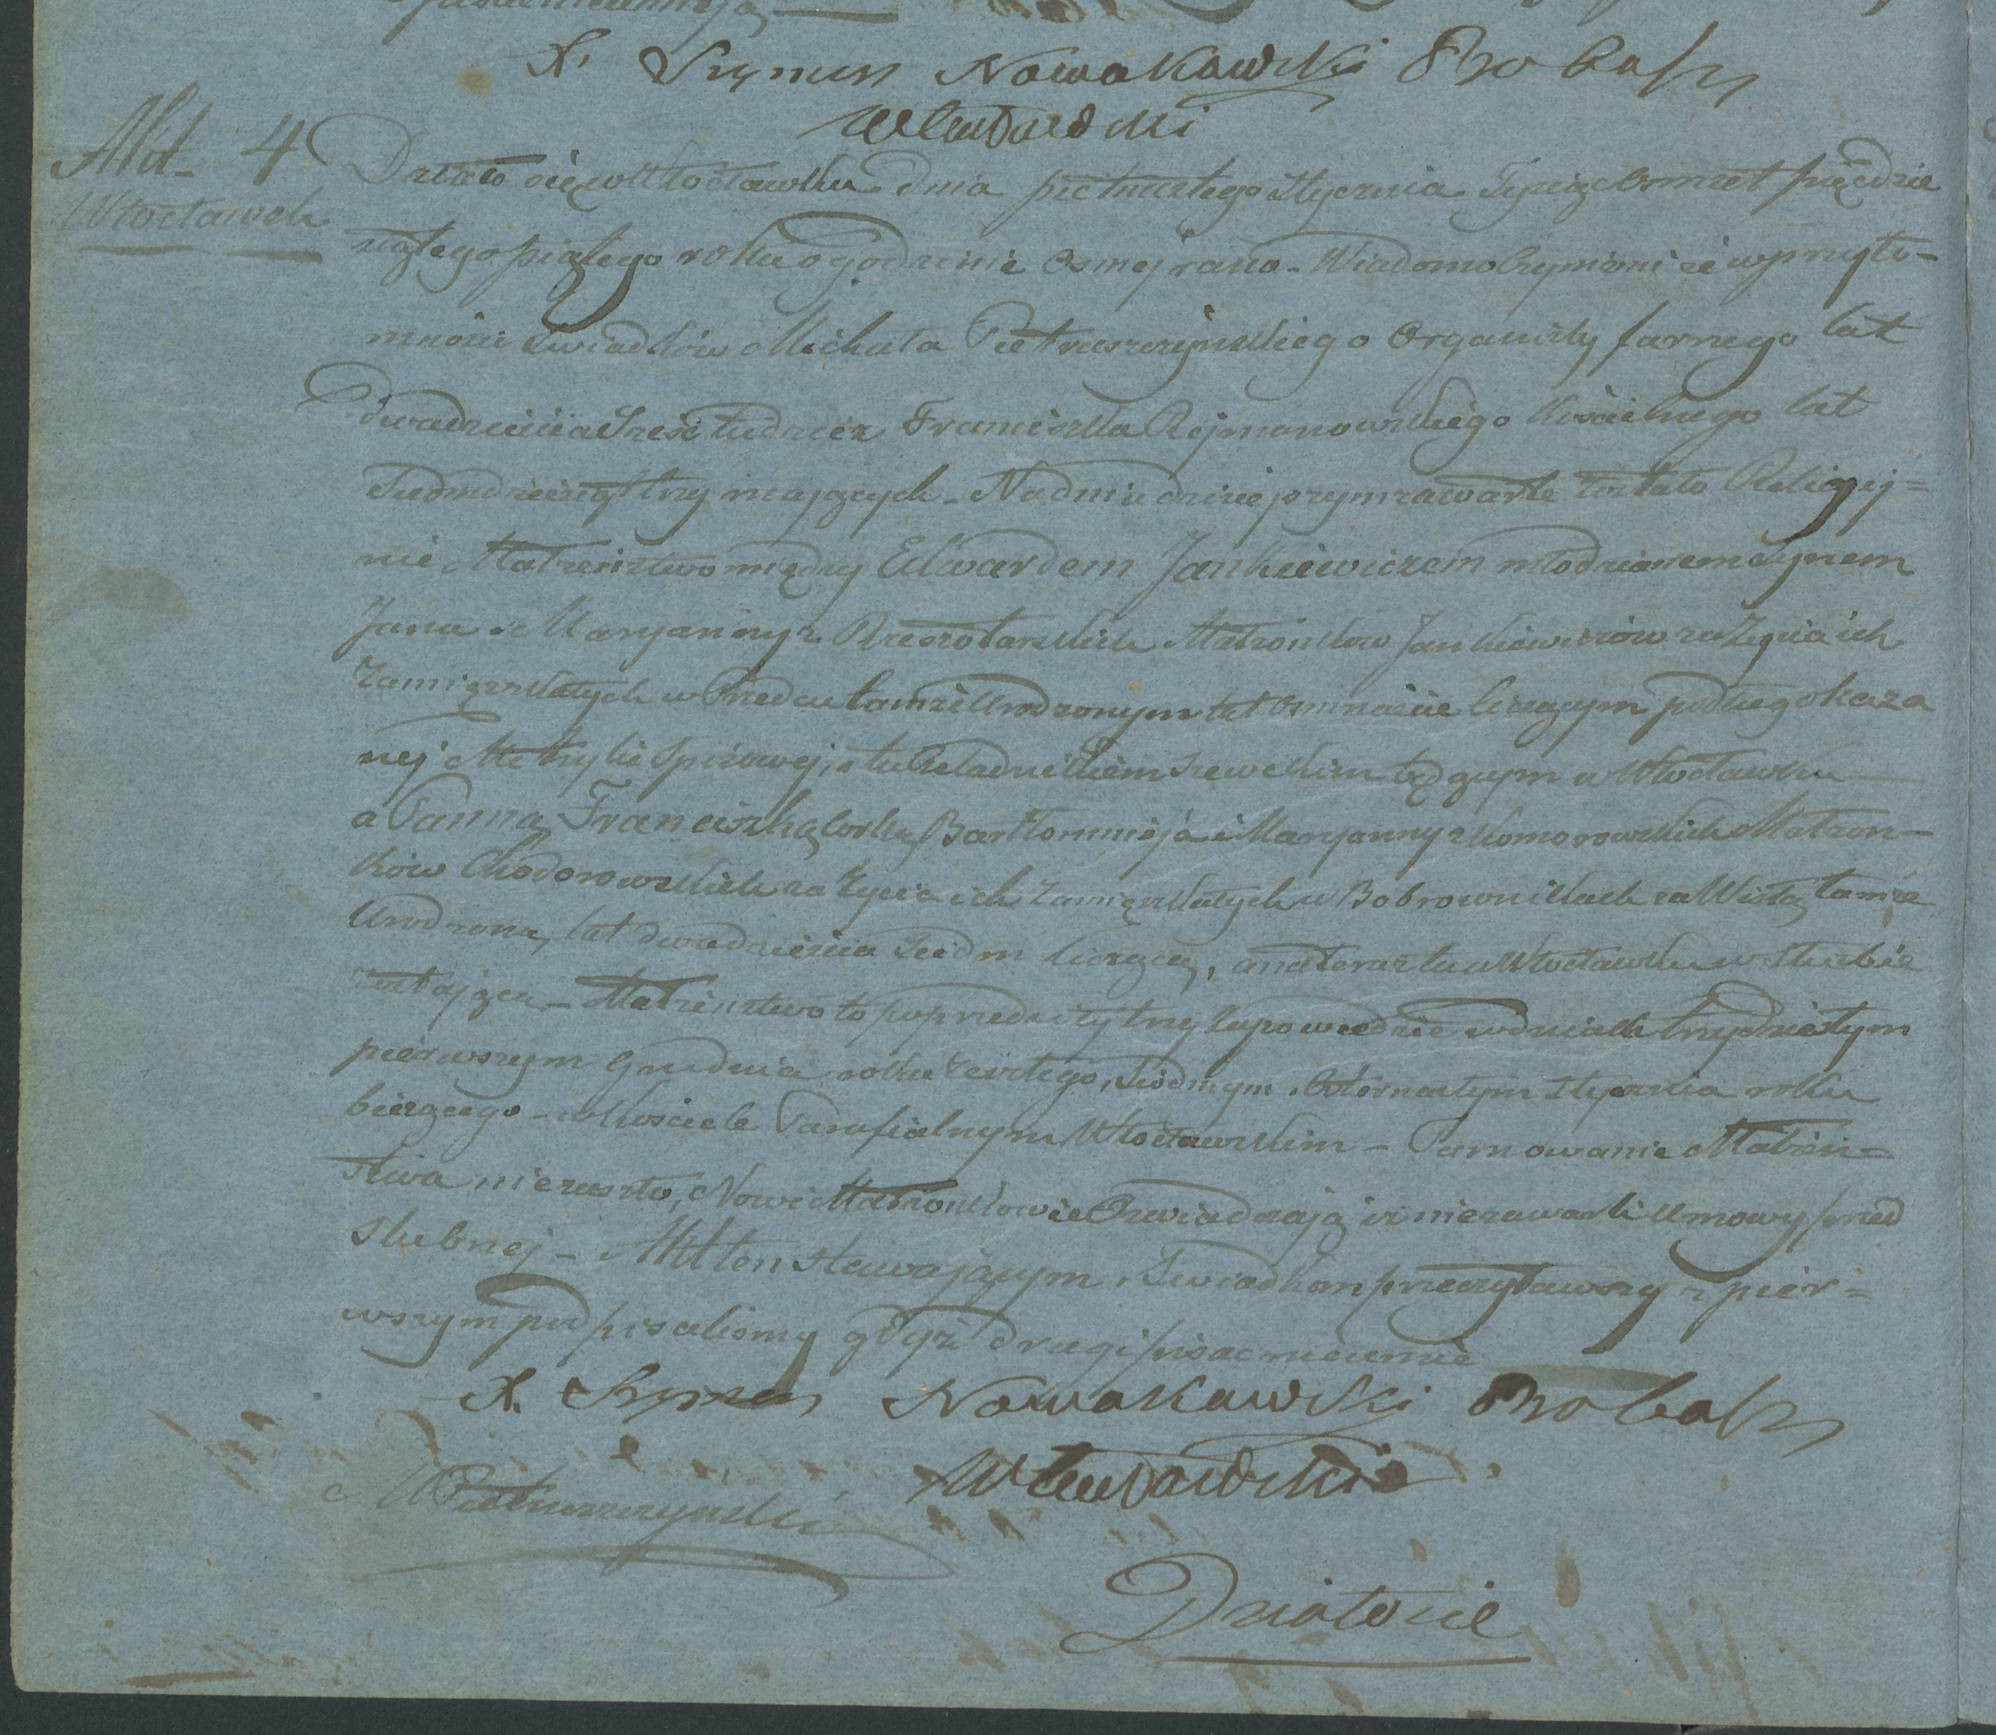 X. Szymon Nowakowski Proboszcz
Włocławski
Akt 4
Włocławek
Działo się w Włocławku dnia pietnastego Stycznia Tysiąc Ośmset pięćdzie
siątego piątego roku o godzinie Osmej rano – Wiadomo Czyniemi że w przyto-
mności Świadków Michała Pietruszczyńskiego Organisty farnego lat
dwadzieścia Sześć tudzież Franciszka Rejmanowskiego Kościelnego lat
Siedmdziesiąt trzy mających – Na dniu dzisiejszym zawarte zostało Religij=
nie Małżeństwo między Edwardem Jankiewiczem młodzianem Synem
Jana i Maryanny z Małżonków Jankiewiczów za życia ich
Zamięszkałych w tamże Urodzonym lat Ośmnaście liczącym podług okaza
nej Metryki Spisowej, a tu Czeladnikiem Szewckim będącym w Włocławku
a Panną Franciszką Córką Bartłomnieja i Maryanny z Komorowskich Małżon-
ków Chodorowskich za życia ich Zamięszkałych w Bobrownikach za Wisłą tamże
Urodzoną, lat dwadzieścia Siedm liczącą, a na teraz tu w Włocławku w Służbie
zostającą – Małżeństwo to poprzedziły trzy Zapowiedzie w dniach trzydziestym
pierwszym Grudnia roku zeszłego, Siódmym, Czternastym Stycznia roku
bieżącego – w Kościele Parafialnym Włocławskim – Tamowanie Małżeń=
stwa nie zaszło, Nowi Małżonkowie Oświadczają iż nie zawarli Umowy przed
Ślubnej – Akt ten Stawającym i Świadkom przeczytawszy z pier=
wszym podpisaliśmy gdyż drugi pisać nieumie
X. Szymon Nowakowski Proboszcz
Włocławski
M Pietruszczyński
Działo się